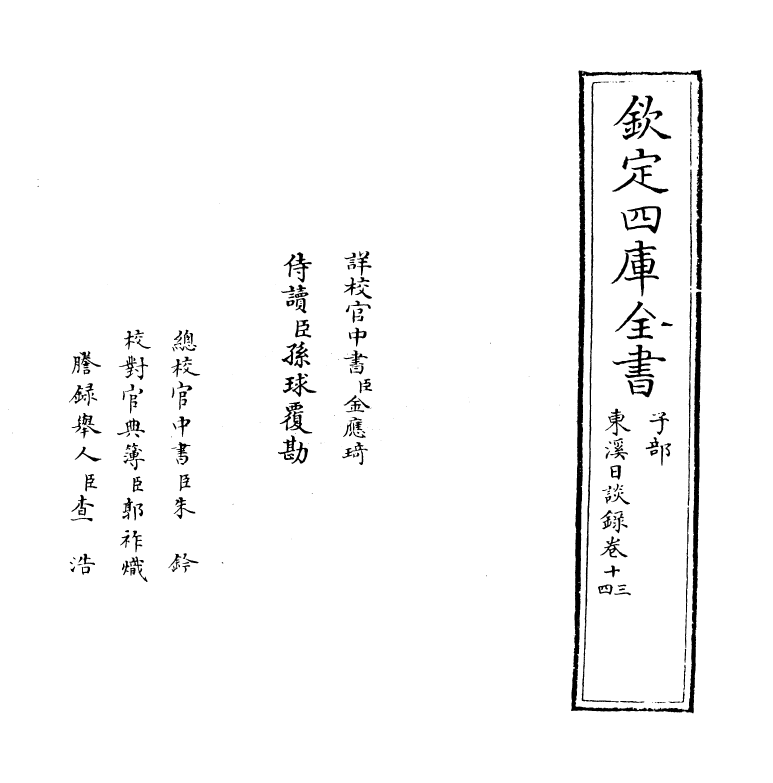 欽定四庫全書
子部
東溪日談録卷十三四
詳校官中書臣金應琦
侍讀臣孫球覆勘
總校官中書臣朱鈐
校對官典簿臣郭祚熾
謄録舉人臣查浩